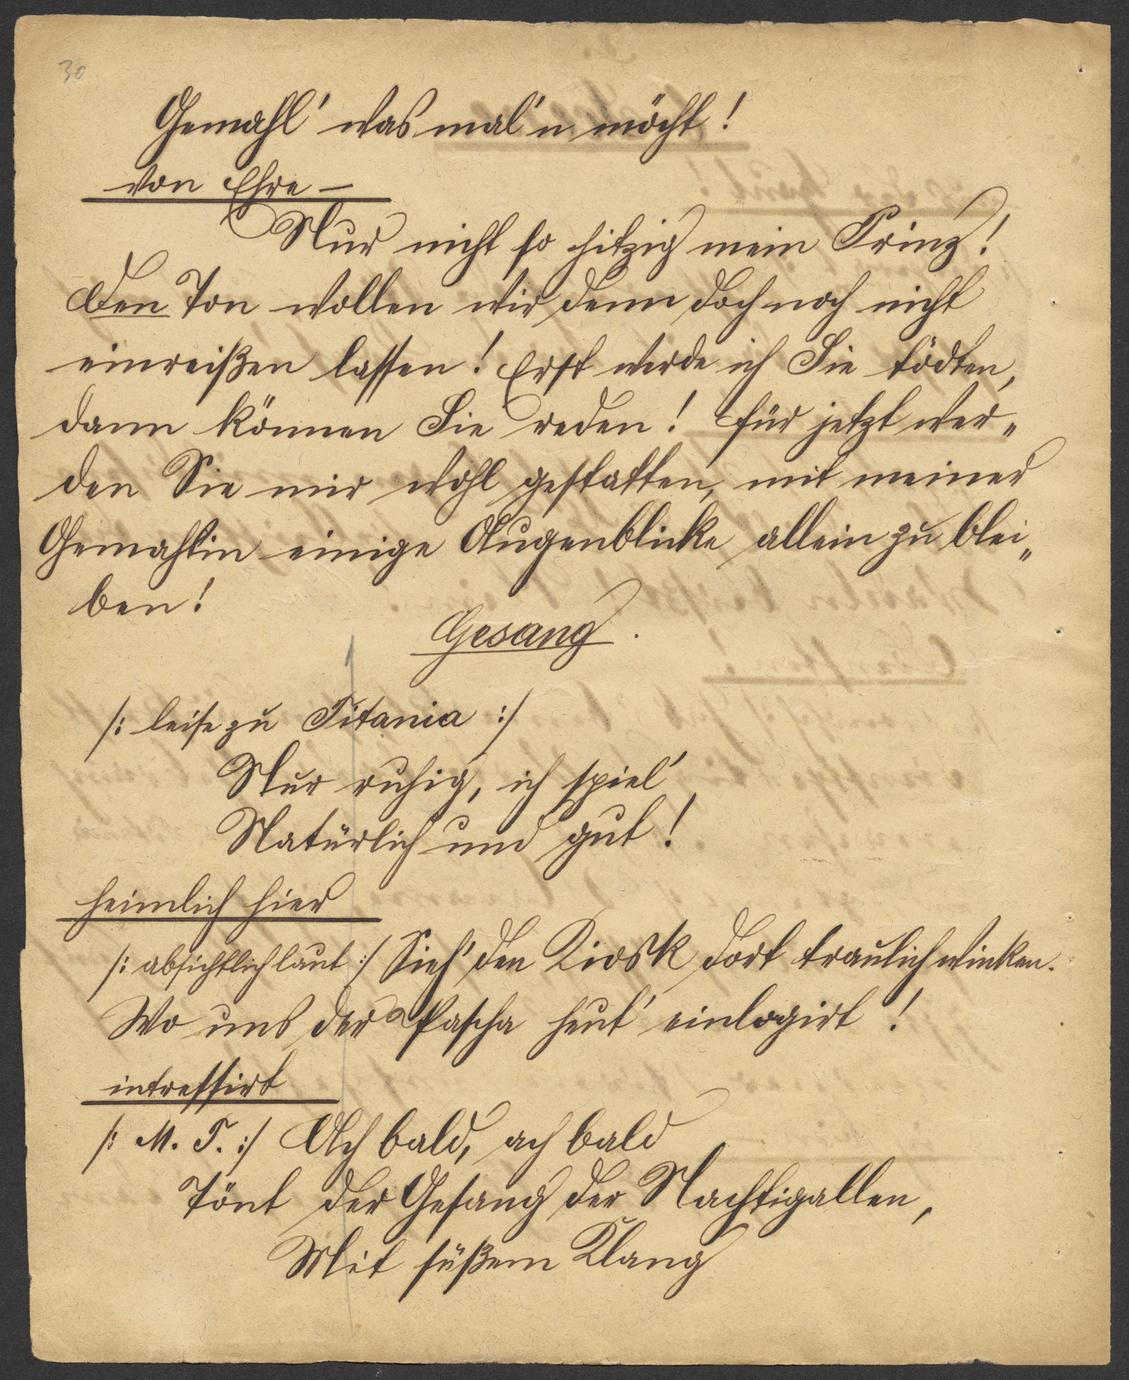 30
Gemahl' was mal'n möcht!
von Ehre –
Nur nicht so hitzig mein Prinz!
Den Ton wollen wir denn doch noch nicht
einreißen lassen! Erst werde ich Sie tödten,
dann können Sie reden! für jetzt wer„
den Sie mir wohl gestatten, mit meiner
Gemahlin einige Augenblicke allein zu blei„
ben!
Gesang.
/: leise zu Titania :/
Nur ruhig, ich spiel'
Natürlich und gut!
heimlich hier
/: absichtlich laut :/ Sieh' den Kiosk dort traulich winken.
Wo uns der Pascha heut' einlogirt!
intressirt
/: M. T. :/ Ach bald, ach bald
Tönt der Gesang der Nachtigallen,
Mit süßem Klang